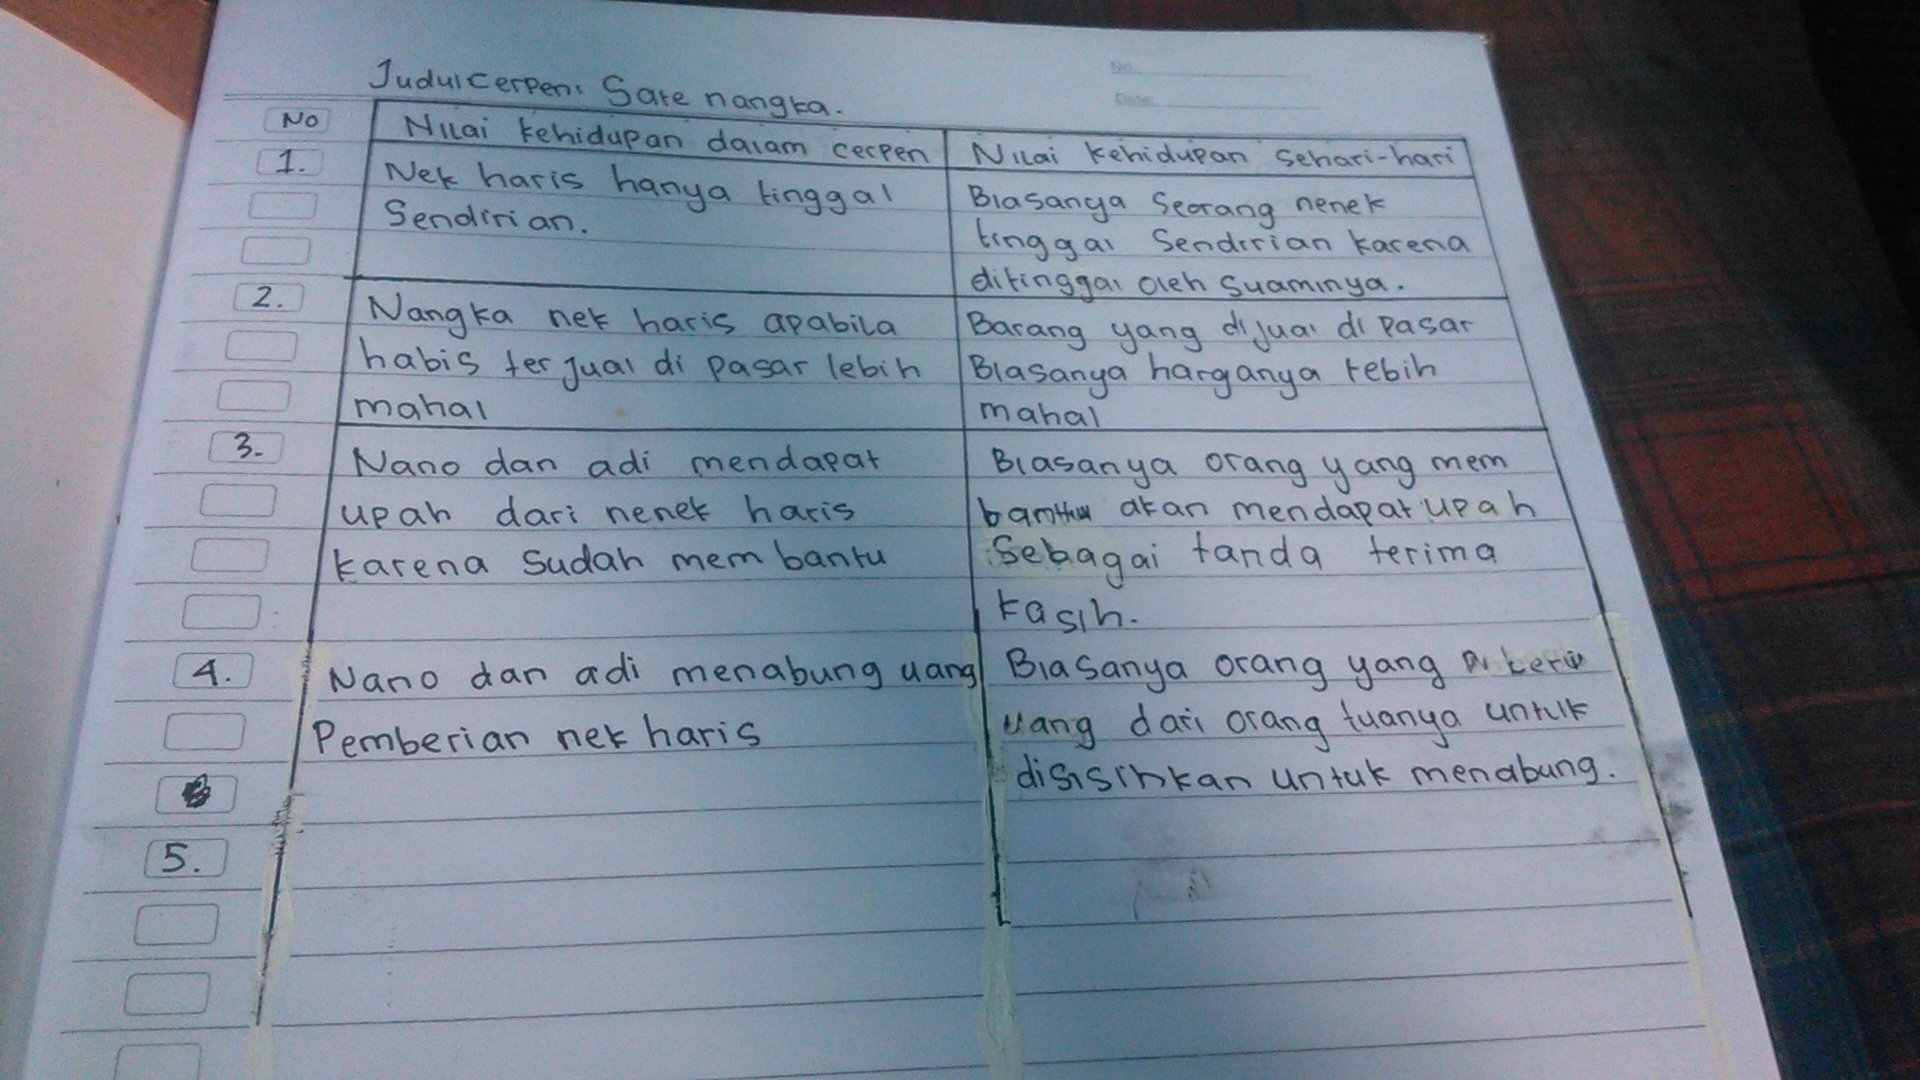 No.
Date:
Judul cerpen: Sate nangka.
No
Nilai kehidupan dalam cerpen
Nilai kehidupan sehari-hari
1.
Nek haris hanya tinggal
Sendirian.
Biasanya Seorang nenek
tinggal Sendirian karena
ditinggal oleh suaminya.
2.
Nangka nek haris apabila
habis terjual di pasar lebih
mahal
Barang yang dijual di pasar
Biasanya harganya lebih
mahal
3.
Nano dan adi mendapat
upah dari nenek haris
karena sudah membantu
Biasanya orang yang mem
bantu akan mendapat upah
Sebagai tanda terima
kasih.
4.
Nano dan adi menabung uang
Pemberian nek haris
Biasanya orang yang
uang dari orang tuanya untuk
disisihkan untuk menabung.
5.